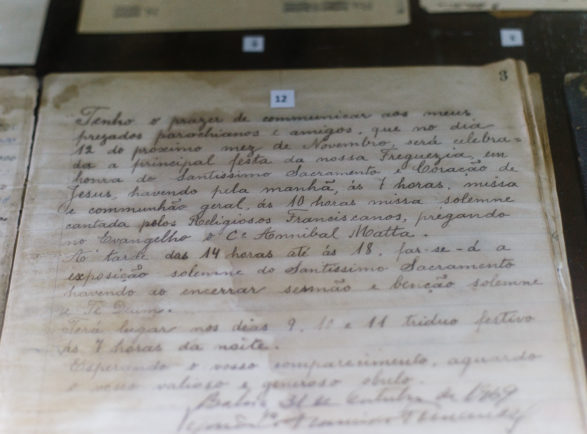 8
6
3
12
Tenho o prazer de communicar aos meus
prezados parochianos e amigos, que no dia
12 do próximo mez de Novembro, será celebra-
da a principal festa da nossa Freguezia, em
honra do Santissimo Sacramento e Coração de
Jesus, havendo pela manhã, ás 7 horas, missa
de communhão geral, ás 10 horas missa solemne
cantada pelos Religiosos Franciscanos, pregando
no Evangelho o Cº Annibal Matta.
Á tarde das 14 horas até ás 18, far-se-á a
exposição solemne do Santissimo Sacramento
havendo ao encerrar sermão e benção solemne
e Te Deum.
Terá lugar nos dias 9, 10 e 11 triduo festivo
ás 7 horas da noite.
Esperando o vosso comparecimento, aguardo
o vosso valioso e generoso obulo.
Bahia 31 de Outubro de